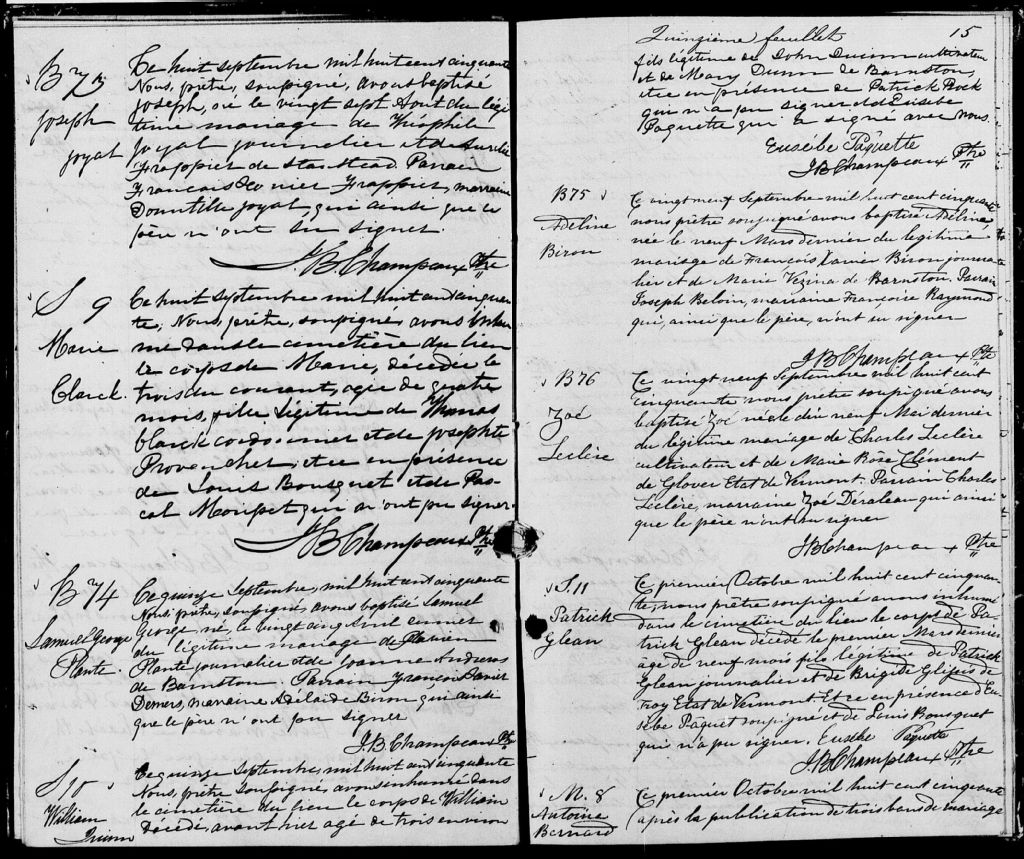 B 73
Joseph
Joyal
Ce huit septembre mil huit cent cinquante
Nous, prêtre, soupigné, avons baptisé
Joseph, né le vingt sept Aout du légi
time mariage de Théophile
Joyal journalier et de Aurélie
Frappier de Stanstead. Parrain
Francois Frappier, marraine
Domitille Joyal, qui ainsi que le
père n'ont su signer.
J.B. Champeaux Ptre
S 9
Marie
Clarck
Ce huit septembre mil huit cent cinquan
te, Nous, prêtre, soupigné, avons inhu
mé dans le cimetière du lieu
le corps de Marie, décédée le
trois du courant, agée de quatre
mois, fille légitime de Thomas
Clarck cordonnier et de Josephte
Provencher, et ce en présence
de Louis Bousquet et de Pas
cal qui n'ont pu signer
J.B. Champeaux Ptre
B 74
Samuel George
Plante
Ce quinze Septembre, mil huit cent cinquante
Nous, prêtre, soupigné, avons baptisé Samuel
George, né, le vingt cinq Avril
du légitime mariage de
Plante journalier et de Joanne Andrews
de Barnston. Parrain Francois Xavier
Demers, marraine Adélaïde Biron qui ainsi
que le père n'ont pu signer
J.B. Champeaux Ptre
S 10
William
Quinn
Ce quinze Septembre, mil huit cent cinquante
Nous, prêtre soupigné, avons inhumé dans
le cimetière du lieu le corps de William
décédé, avant hier agé de trois environ
15
Quinzième feuillet
fils légitime de John cultivateur
et de Mary Dunn de Barnston,
et ce en présence de Patrick
qui n'a pu signer et d'Eusèbe
Paquette qui a signé avec nous.
Eusèbe Pâquette
J B Champeaux Ptre
B 75
Adéline
Biron
Ce vingt neuf Septembre mil huit cent cinquante
nous prêtre soupigné avons baptisé Adéline
née le neuf Mars dernier du légitime
mariage de François Xavier Biron journa
lier et de Marie Vezina de Barnston. Parrain
Joseph Beloin, marraine Françoise Raymond
qui, ainsi que le père, n'ont su signer
J B Champeaux Ptre
B 76
Zoé
Leclère
Ce vingt neuf Septembre mil huit cent
cinquante nous prêtre soupigné avons
baptisé Zoé née le dix neuf Mai dernier
du légitime mariage de Charles Leclère
cultivateur et de Marie Rose Clément
de Glover Etat de Vermont. Parrain Charles
Leclère, marraine Zoé qui ainsi
que le père n'ont su signer
J B Champeaux Ptre
S. 11
Patrick
Glean
Ce premier Octobre mil huit cent cinquan
te, nous prêtre soupigné avons inhumé
dans le cimetière du lieu le corps de Pa-
trick Glean décédé le premier Mars dernier
agé de neuf mois fils légitime de Patrick
Glean journalier et de Brigitte
Troy Etat de Vermont. Et ce en présence d'Eu
sèbe Pâquet soupigné et de Louis Bousquet
qui n'a pu signer. Eusèbe Paquette
J.B. Champeaux Ptre
M. 8
Antoine
Bernard
Ce premier Octobre mil huit cent cinquante
après la publication de trois bans de mariage